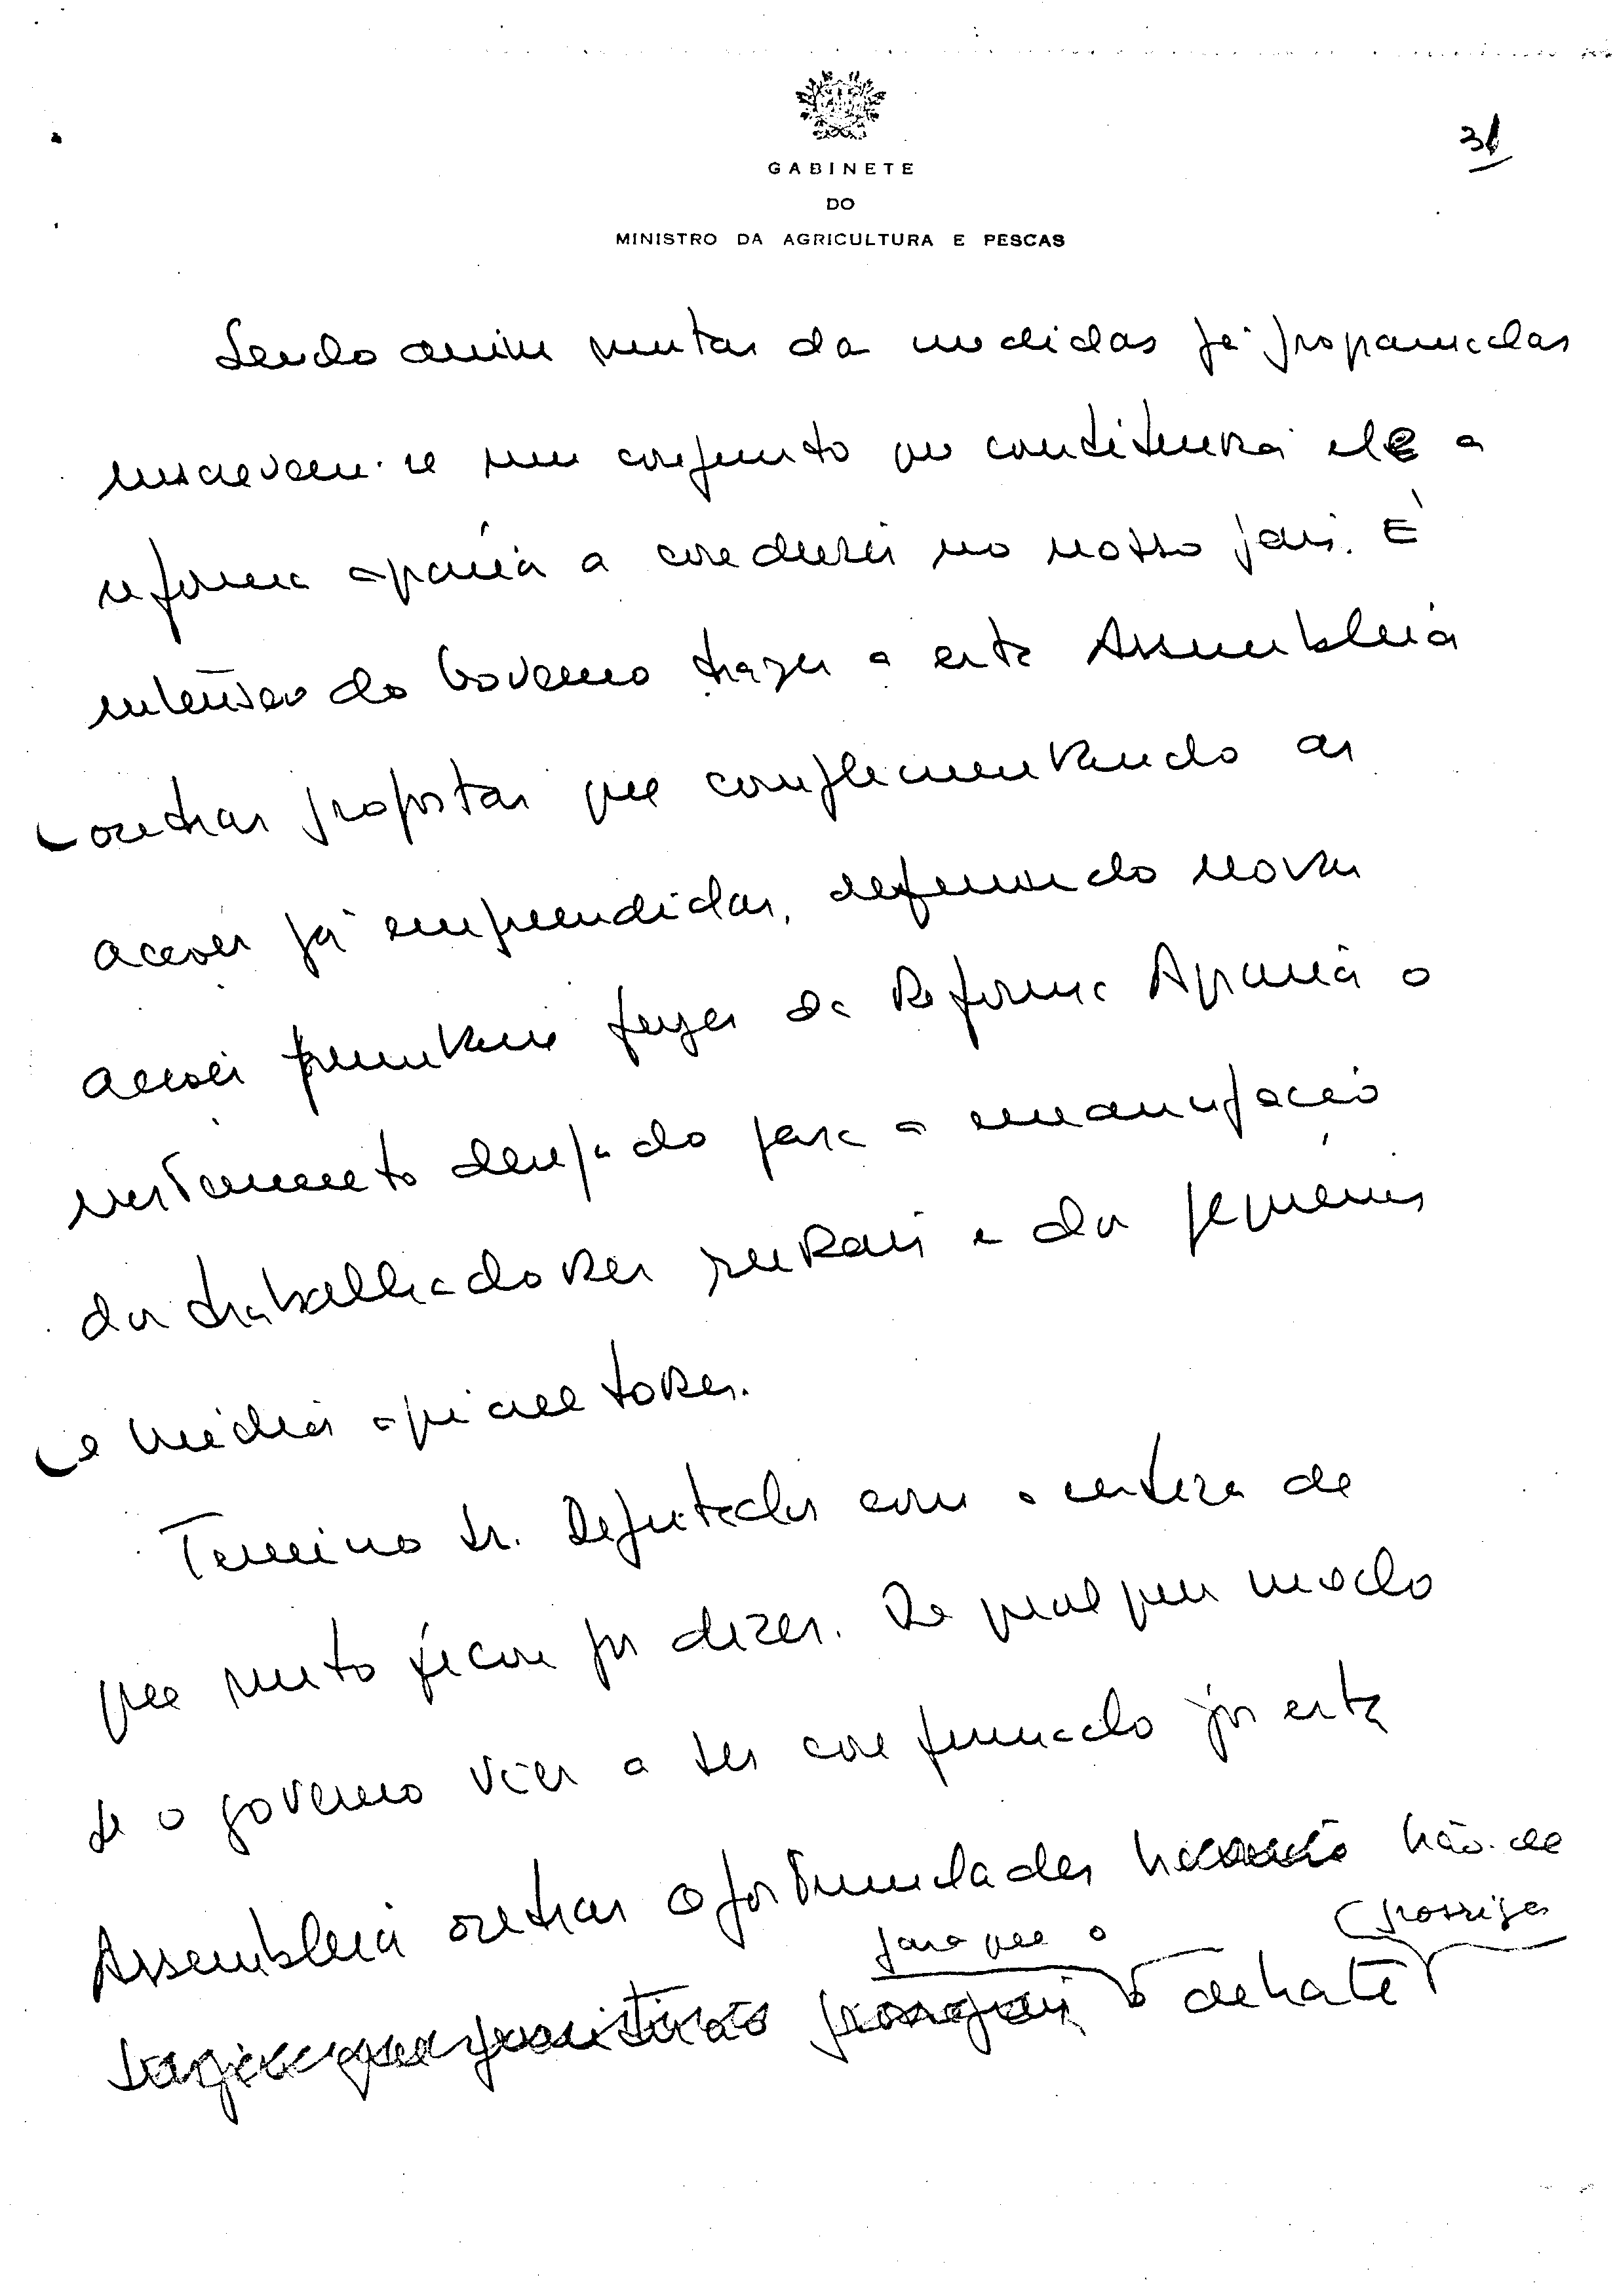 31
GABINETE
DO
MINISTRO DA AGRICULTURA E PESCAS
Sendo assim muitas das medidas já programadas
inscrevem-se num conjunto que constituirá ele a
reforma agrária a conduzir no nosso país. É
intenção do Governo trazer a esta Assembleia
outras propostas que complementando as
acções já empreendidas, definindo novas
acções permitam fazer da Reforma Agrária o
instrumento desejado para a emancipação
dos trabalhadores rurais e dos pequenos
e médios agricultores.
Termino Srs. Deputados com a certeza de
que muito ficou por dizer. De qualquer modo
se o governo vier a ser confirmado por esta
Assembleia outras oportunidades hão-de
para que o prossiga
surgir debate